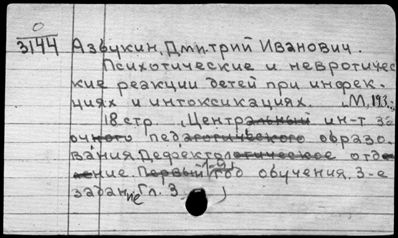 0
3144
Азбукин, Дмитрий Иванович.
Психотические и невротичес
кие реакции детей при инфек-
циях и интоксикациях. М, 193
18 стр. Центральный ин-т за
очного педагогического образо-
вания. Дефектологическое отде
ление. Первый год обучения. 3-е
задание. Гл. 3